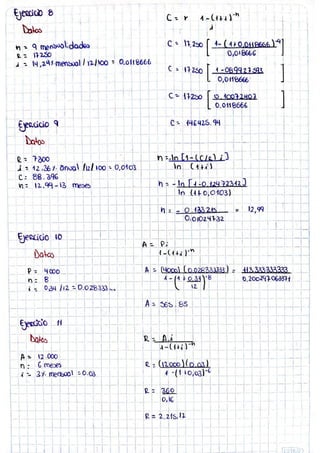 Ejercicio 8
Datos
n = 9 mensualidades
R = 17250
i = 14,24% mensual /12/100 = 0,0118666
C = r 1-(1+i)^-n
i
C = 17250 [ 1-(1+0,0118666)^-9 ]
0,0118666
C = 17250 [ 1-0.89927593 ]
0,0118666
C = 17250 [ 0.10072407 ]
0.0118666
C = 146425.94
Ejercicio 9
Datos
R = 7300
i = 12.36% anual /12/100 = 0,0103
C = 88.396
n = 12,99-13 meses
n = ln [1-(C/R) i]
ln (1+i)
n = - ln [1-0.12472312]
ln (1+0,0103)
n = - 0.133215 = 12,99
0.01024732
Ejercicio 10
Datos
P = 4000
n = 8
i = 0,34 /12 = 0.028333...
A = Pi
1-(1+i)^-n
A = (4000)(0.028333333) = 113,333333333
1-(1+0,34)^-8
12
A = 565.85
Ejercicio 11
Datos
A = 12.000
n = 6 meses
i = 3% mensual = 0.03
R = A.i
1-(1+i)^-n
R = (12000)(0.03)
1-(1+0,03)^-6
R = 360
0,16
R = 2.215,12